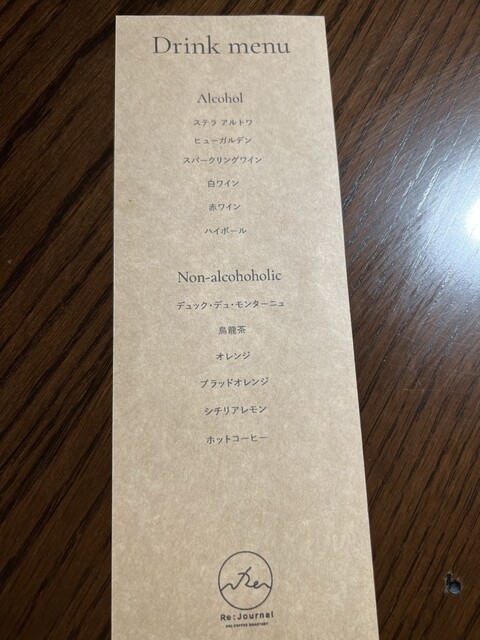 Drink menu
Alcohol
ステラ アルトワ
ヒューガルデン
スパークリングワイン
白ワイン
赤ワイン
ハイボール
Non-alcohoholic
デュック・デュ・モンターニュ
烏龍茶
オレンジ
ブラッドオレンジ
シチリアレモン
ホットコーヒー
Re
Re:Journal